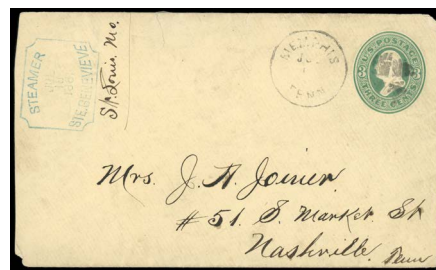 STEAMER
STE. GENEVIEVE
St. Louis, Mo.
MEMPHIS
TENN
U.S. POSTAGE
THREE CENTS
Mrs. J. A. Joiner
# 51. S. Market St
Nashville. Tenn